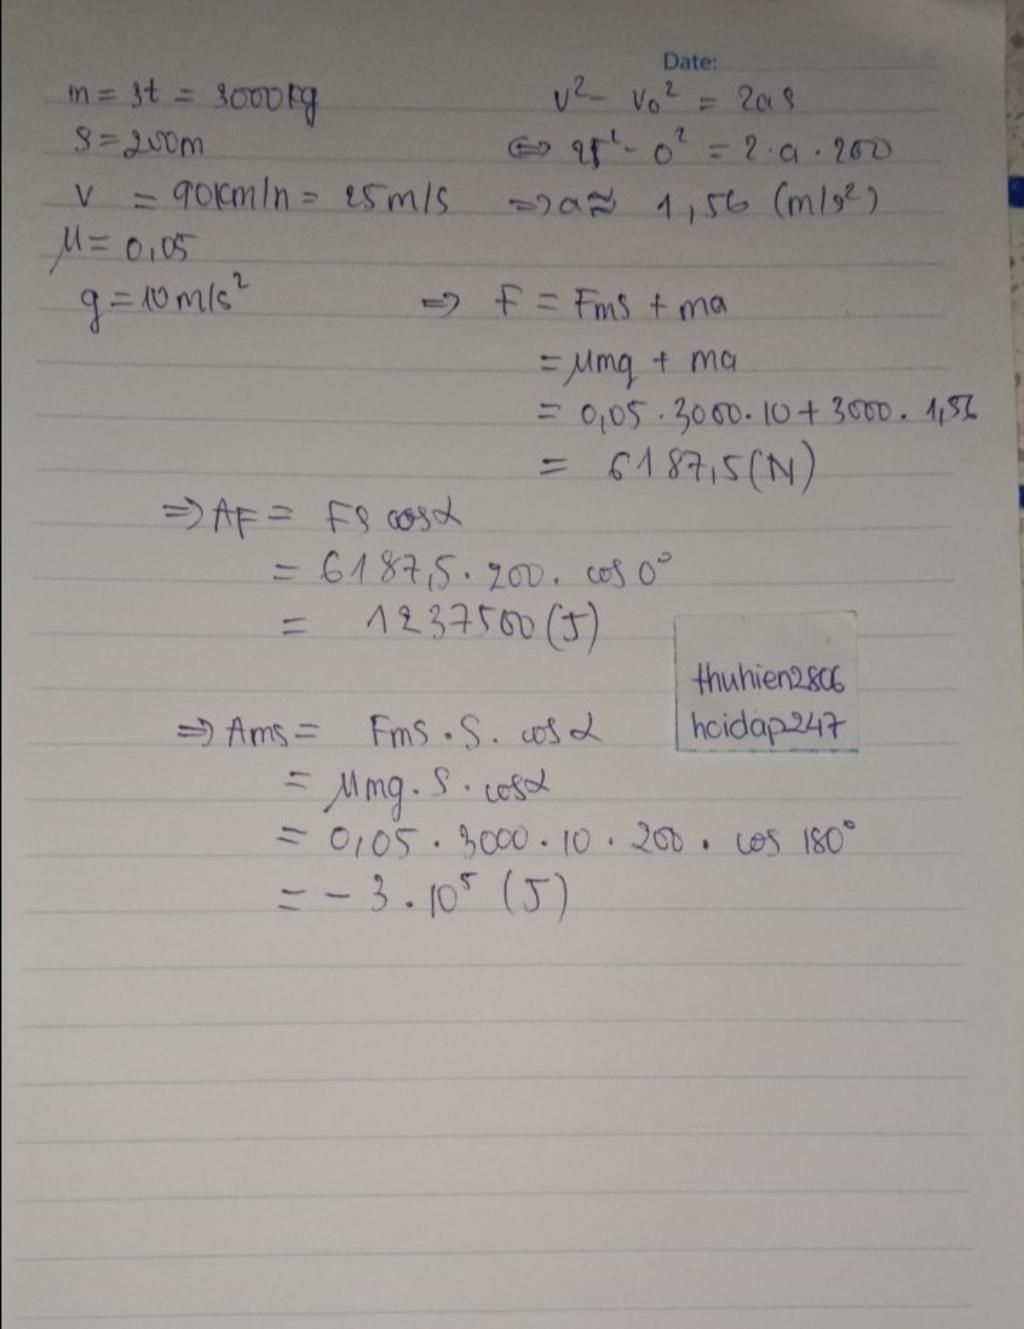 Date:
m = 3t = 3000kg
S = 200m
v = 90km/h = 25m/s
μ = 0,05
g = 10m/s²
v² - v₀² = 2as
⇔ 25² - 0² = 2·a·200
⇒ a ≈ 1,56 (m/s²)
⇒ F = Fms + ma
= μmg + ma
= 0,05·3000·10 + 3000·1,56
= 6187,5 (N)
⇒ AF = FS cosα
= 6187,5·200. cos 0°
= 1237500 (J)
thuhien2806
hoidap247
⇒ Ams = Fms·S. cosα
= μmg·S·cosα
= 0,05·3000·10·200·cos 180°
= -3·10⁵ (J)